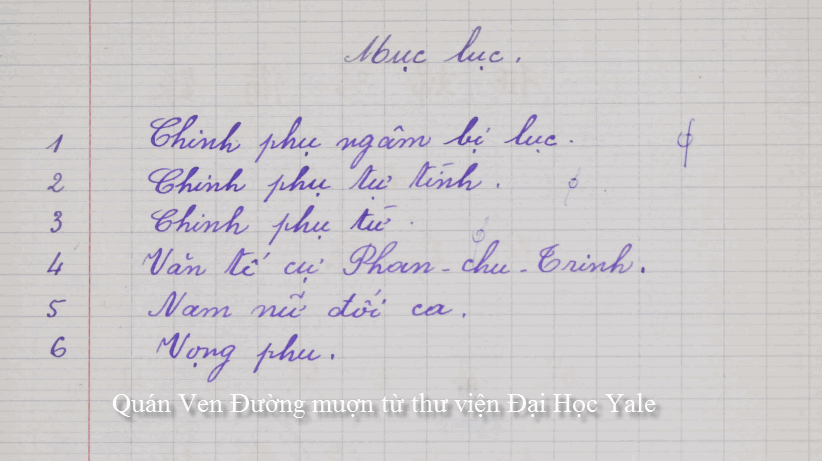 Mục lục.
1 Chinh phụ ngâm bị lục.
2 Chinh phụ tự tình.
3 Chinh phụ từ.
4 Văn tế cụ Phan-chu-Trinh.
5 Nam nữ đối ca.
6 Vọng phu.
Quán Ven Đường mượn từ thư viện Đại Học Yale